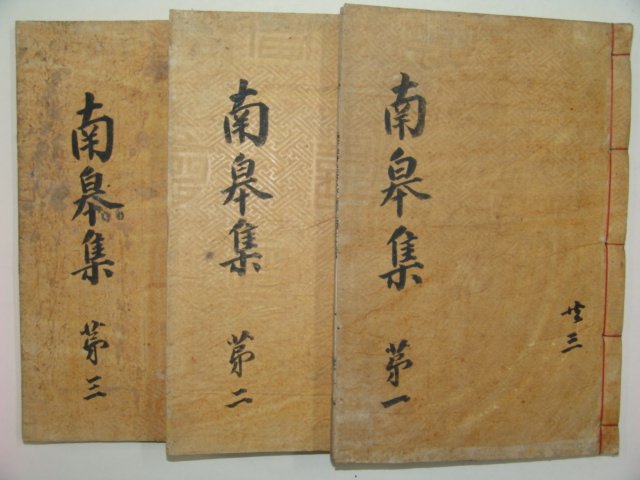 南皐集 第三
南皐集 第二
南皐集 第一
共三